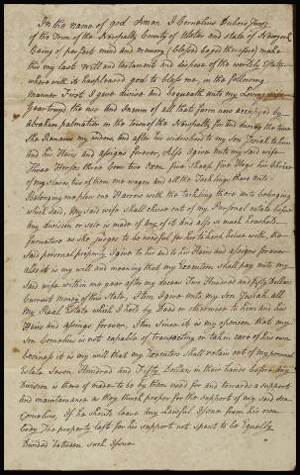 In the name of god Amen I Cornelius Dubois Junr
of the Town of the Newpaltz County of Ulster and state of Newyork
Being of perfect mind and memory (blessed be god therefor) make
this my last Will and testament and dispose of the worldly Estate
where with it has pleased god to bless me, in the following
manner First I give devise and bequeath unto my Loving wife
Geartroud the use and Income of all that farm now occupied by
abraham palmation in the town of the Newpaltz for and during the time
She Remains my widow, and after his widowhood to my son Josiah to him
and his Heirs and assigns forever, Also I give unto my said wife
Three Horses three Cows two Oxen five Sheep five Hogs her Choice
of my slaves two of them one waggon and all the Tackling there unto
Belonging one plow one Harrow with the tackling there unto belonging
which said, My said wife shall chuse out of my Personal estate before
Any division or sale is made of any of it and also so much household
furniture as she judges to be needful for his to keep house with, the
Said personal property I give to her and to his Heirs and assigns forever
also it is my will and meaning that my Executors shall pay unto my
said wife within one year after my decease Two Hundred and fifty Dollars
Current money of this State, I tem I give unto my son Josiah all
My Real Estate which I hold by Deed or otherwise to him and his
Heirs and assigns forever. Item Since it is my opinion that my
son Cornelius is not capable of transacting or taken care of his own
concerns it is my will that my Executors shall retain out of my personal
Estate Seven Hundred and Fifty Dollars in their hands before any
Division is there of made to be by them used for and towards a support
and maintenance as they think proper for the support of my said son
Cornelius, If he should leave any Lawful Issue from his own
body The property left for his support not spent to be Equally
Divided between such Issue